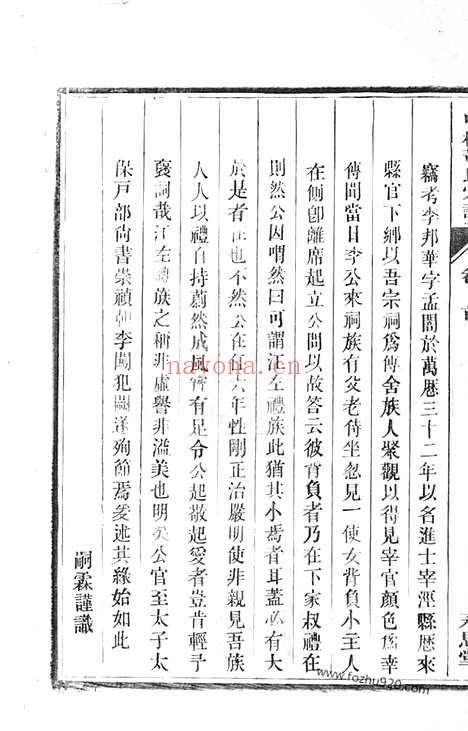 竊考李邦華字孟闇於萬厯三十二年以名進士宰涇縣厯來
縣官下鄉以吾宗祠爲傳舍族人聚觀以得見宰官顏色爲幸
傳聞當日李公來祠族有父老侍坐忽見一使女背負小主人
在側卽離席起立公問以故答云彼背負者乃在下家叔禮在
則然公因喟然曰可謂江左禮族此猶其小焉者耳蓋必有大
於是者在也不然公在任六年性剛正治嚴明使非親見吾族
人人以禮自持蔚然成風實有足令公起敬起愛者豈肯輕予
襃詞哉江左禮族之稱非虛譽非溢美也明矣公官至太子太
保戸部尚書崇禎朝李闖犯闕遂殉節焉爰述其緣始如此
嗣霖謹識
nayona.cn
www.fozhu920.com